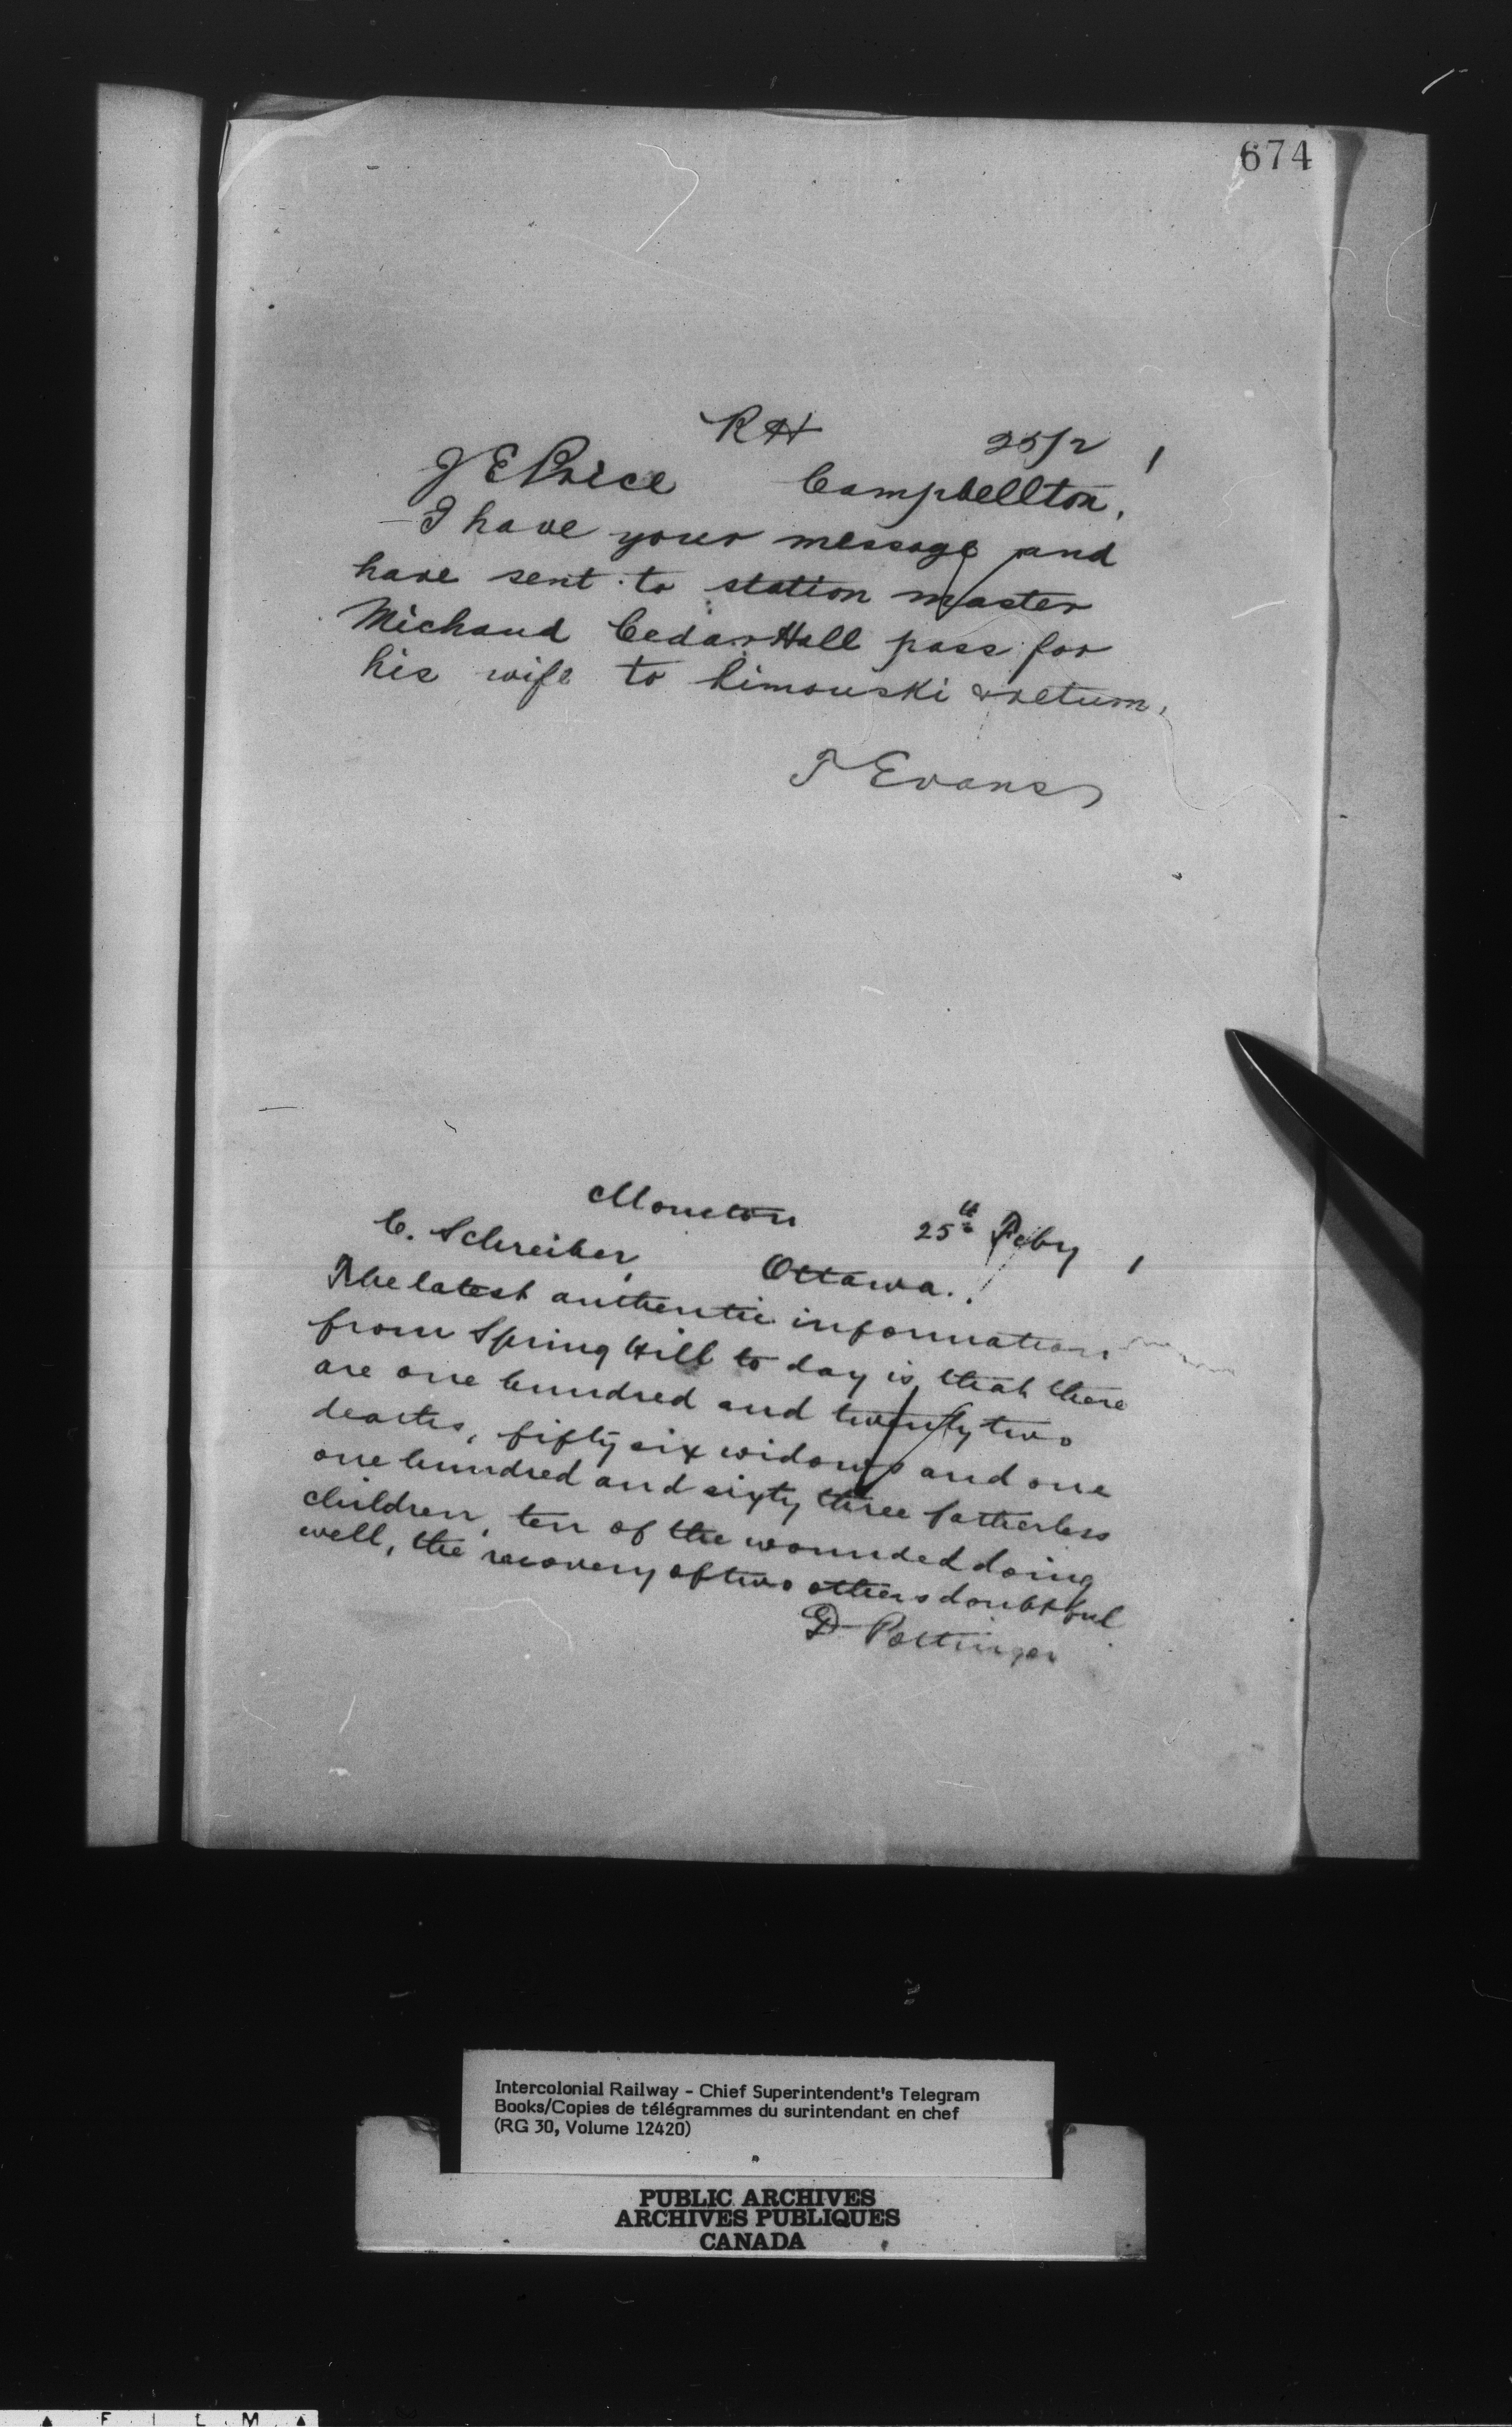 674
RH 25/2
J E Price Campbellton.
I have your message and
have sent to station master
Michaud Cedar Hall pass for
his wife to Rimouski & return.
T Evans
Moncton 25th Feby
C. Schreiber, Ottawa.
The latest authentic information
from Spring Hill to day is that there
are one hundred and twenty two
deaths, fifty six widows and one
one hundred and sixty three fatherless
children, ten of the wounded doing
well, the recovery of two others doubtful
D Pottinger
Intercolonial Railway - Chief Superintendent's Telegram
Books/Copies de télégrammes du surintendant en chef
(RG 30, Volume 12420)
PUBLIC ARCHIVES
ARCHIVES PUBLIQUES
CANADA
F I L M